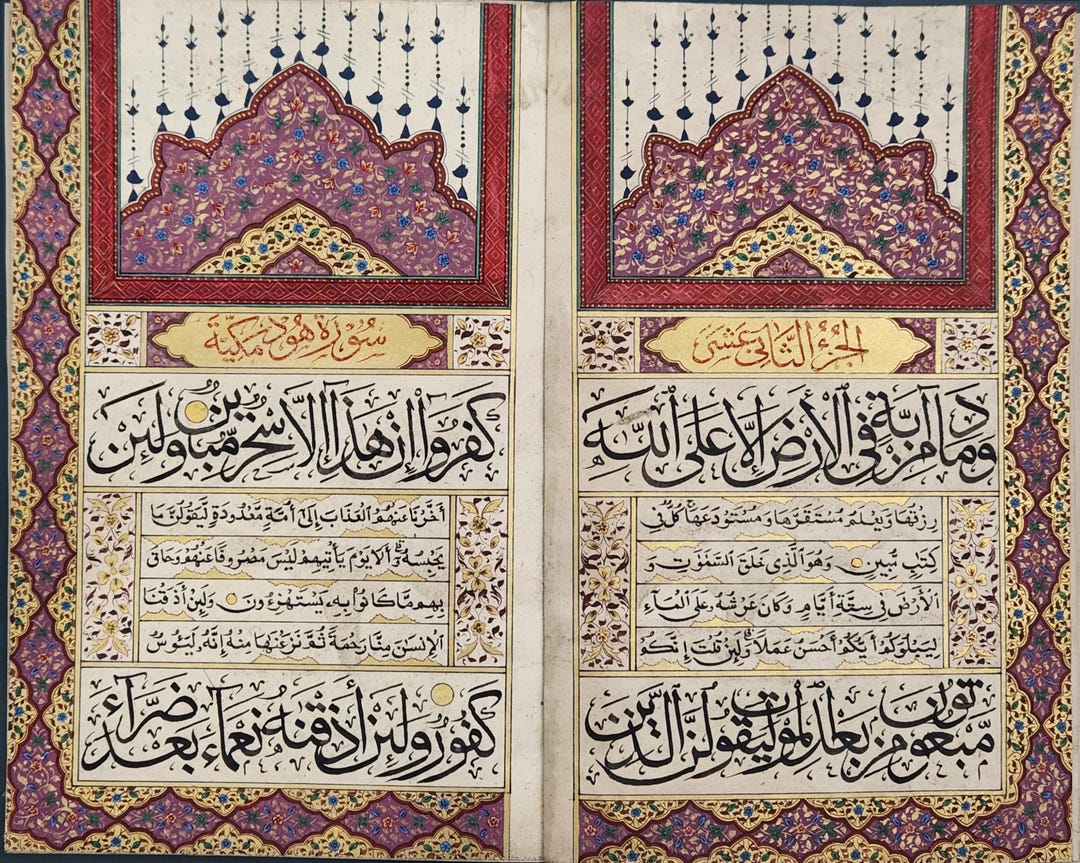 الجزء الثاني عشر
وَمَا مِن دَابَّةٍ فِي الْأَرْضِ إِلَّا عَلَى اللَّهِ
رِزْقُهَا وَيَعْلَمُ مُسْتَقَرَّهَا وَمُسْتَوْدَعَهَا كُلٌّ فِي
كِتَٰبٍ مُّبِينٍ وَهُوَ الَّذِي خَلَقَ السَّمَٰوَٰتِ وَ
الْأَرْضَ فِي سِتَّةِ أَيَّامٍ وَكَانَ عَرْشُهُ عَلَى الْمَاءِ
لِيَبْلُوَكُمْ أَيُّكُمْ أَحْسَنُ عَمَلًا وَلَئِن قُلْتَ إِنَّكُم
مَّبْعُوثُونَ مِن بَعْدِ الْمَوْتِ لَيَقُولَنَّ الَّذِينَ
سورة هود مكية
كَفَرُوا إِنْ هَٰذَا إِلَّا سِحْرٌ مُّبِينٌ وَلَئِنْ
أَخَّرْنَا عَنْهُمُ الْعَذَابَ إِلَىٰ أُمَّةٍ مَّعْدُودَةٍ لَّيَقُولُنَّ مَا
يَحْبِسُهُ أَلَا يَوْمَ يَأْتِيهِمْ لَيْسَ مَصْرُوفًا عَنْهُمْ وَحَاقَ
بِهِم مَّا كَانُوا بِهِ يَسْتَهْزِءُونَ وَلَئِنْ أَذَقْنَا
الْإِنسَٰنَ مِنَّا رَحْمَةً ثُمَّ نَزَعْنَٰهَا مِنْهُ إِنَّهُ لَيَئُوسٌ
كَفُورٌ وَلَئِنْ أَذَقْنَٰهُ نَعْمَاءَ بَعْدَ ضَرَّاءَ